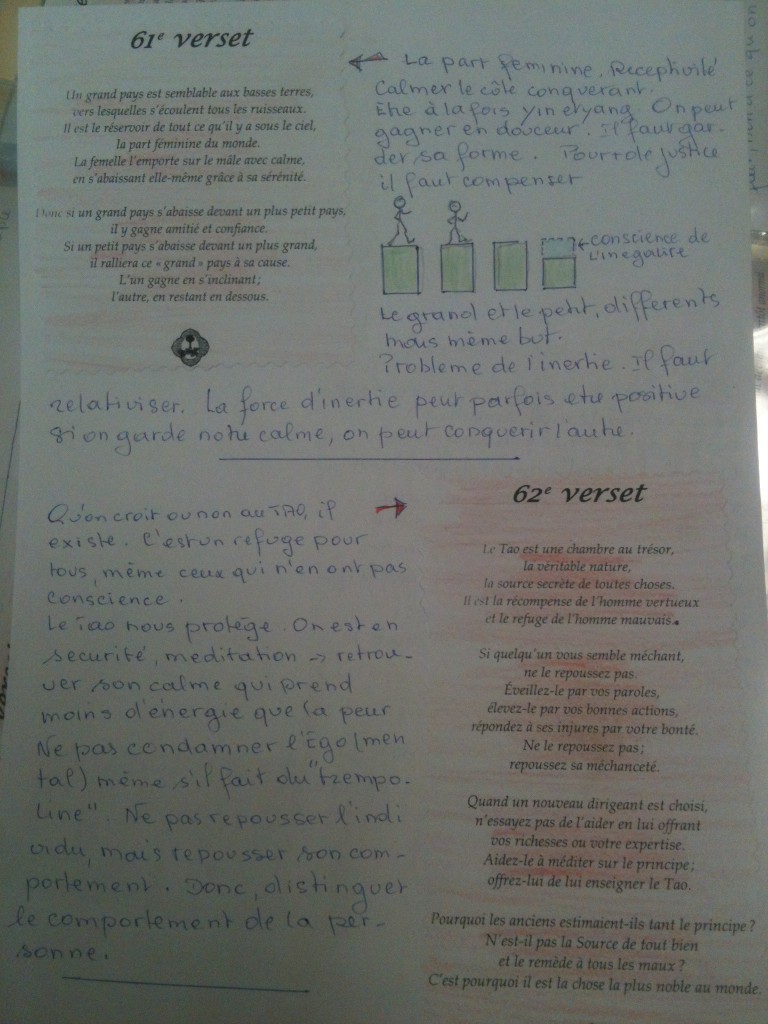 61e verset
Un grand pays est semblable aux basses terres,
vers lesquelles s'écoulent tous les ruisseaux.
Il est le réservoir de tout ce qu'il y a sous le ciel,
la part féminine du monde.
La femelle l'emporte sur le mâle avec calme,
en s'abaissant elle-même grâce à sa sérénité.
Donc si un grand pays s'abaisse devant un plus petit pays,
il y gagne amitié et confiance.
Si un petit pays s'abaisse devant un plus grand,
il ralliera ce « grand » pays à sa cause.
L'un gagne en s'inclinant;
l'autre, en restant en dessous.
La part féminine. Receptivité
Calmer le côté conquerant.
Etre à la fois yin et yang. On peut
gagner en douceur. Il faut gar-
der sa forme. Pour + de justice
il faut compenser
conscience de
l'inégalité
Le grand et le petit, differents
mais même but.
Probleme de l'inertie. Il faut
relativiser. La force d'inertie peut parfois etre positive
si on garde notre calme, on peut conquerir l'autre.
Qu'on croit ou non au TAO, il
existe. C'est un refuge pour
tous, même ceux qui n'en ont pas
conscience.
Le Tao nous protège. On est en
securité, meditation → retrou-
ver son calme qui prend
moins d'énergie que la peur
Ne pas condamner l'Ego (men
tal) même s'il fait du "trempo-
line". Ne pas repousser l'indi
vidu, mais repousser son com-
portement. Donc, distinguer
le comportement de la per-
sonne.
62e verset
Le Tao est une chambre au trésor,
la véritable nature,
la source secrète de toutes choses.
Il est la récompense de l'homme vertueux
et le refuge de l'homme mauvais.
Si quelqu'un vous semble méchant,
ne le repoussez pas.
Éveillez-le par vos paroles,
élevez-le par vos bonnes actions,
répondez à ses injures par votre bonté.
Ne le repoussez pas;
repoussez sa méchanceté.
Quand un nouveau dirigeant est choisi,
n'essayez pas de l'aider en lui offrant
vos richesses ou votre expertise.
Aidez-le à méditer sur le principe;
offrez-lui de lui enseigner le Tao.
Pourquoi les anciens estimaient-ils tant le principe ?
N'est-il pas la Source de tout bien
et le remède à tous les maux ?
C'est pourquoi il est la chose la plus noble au monde.